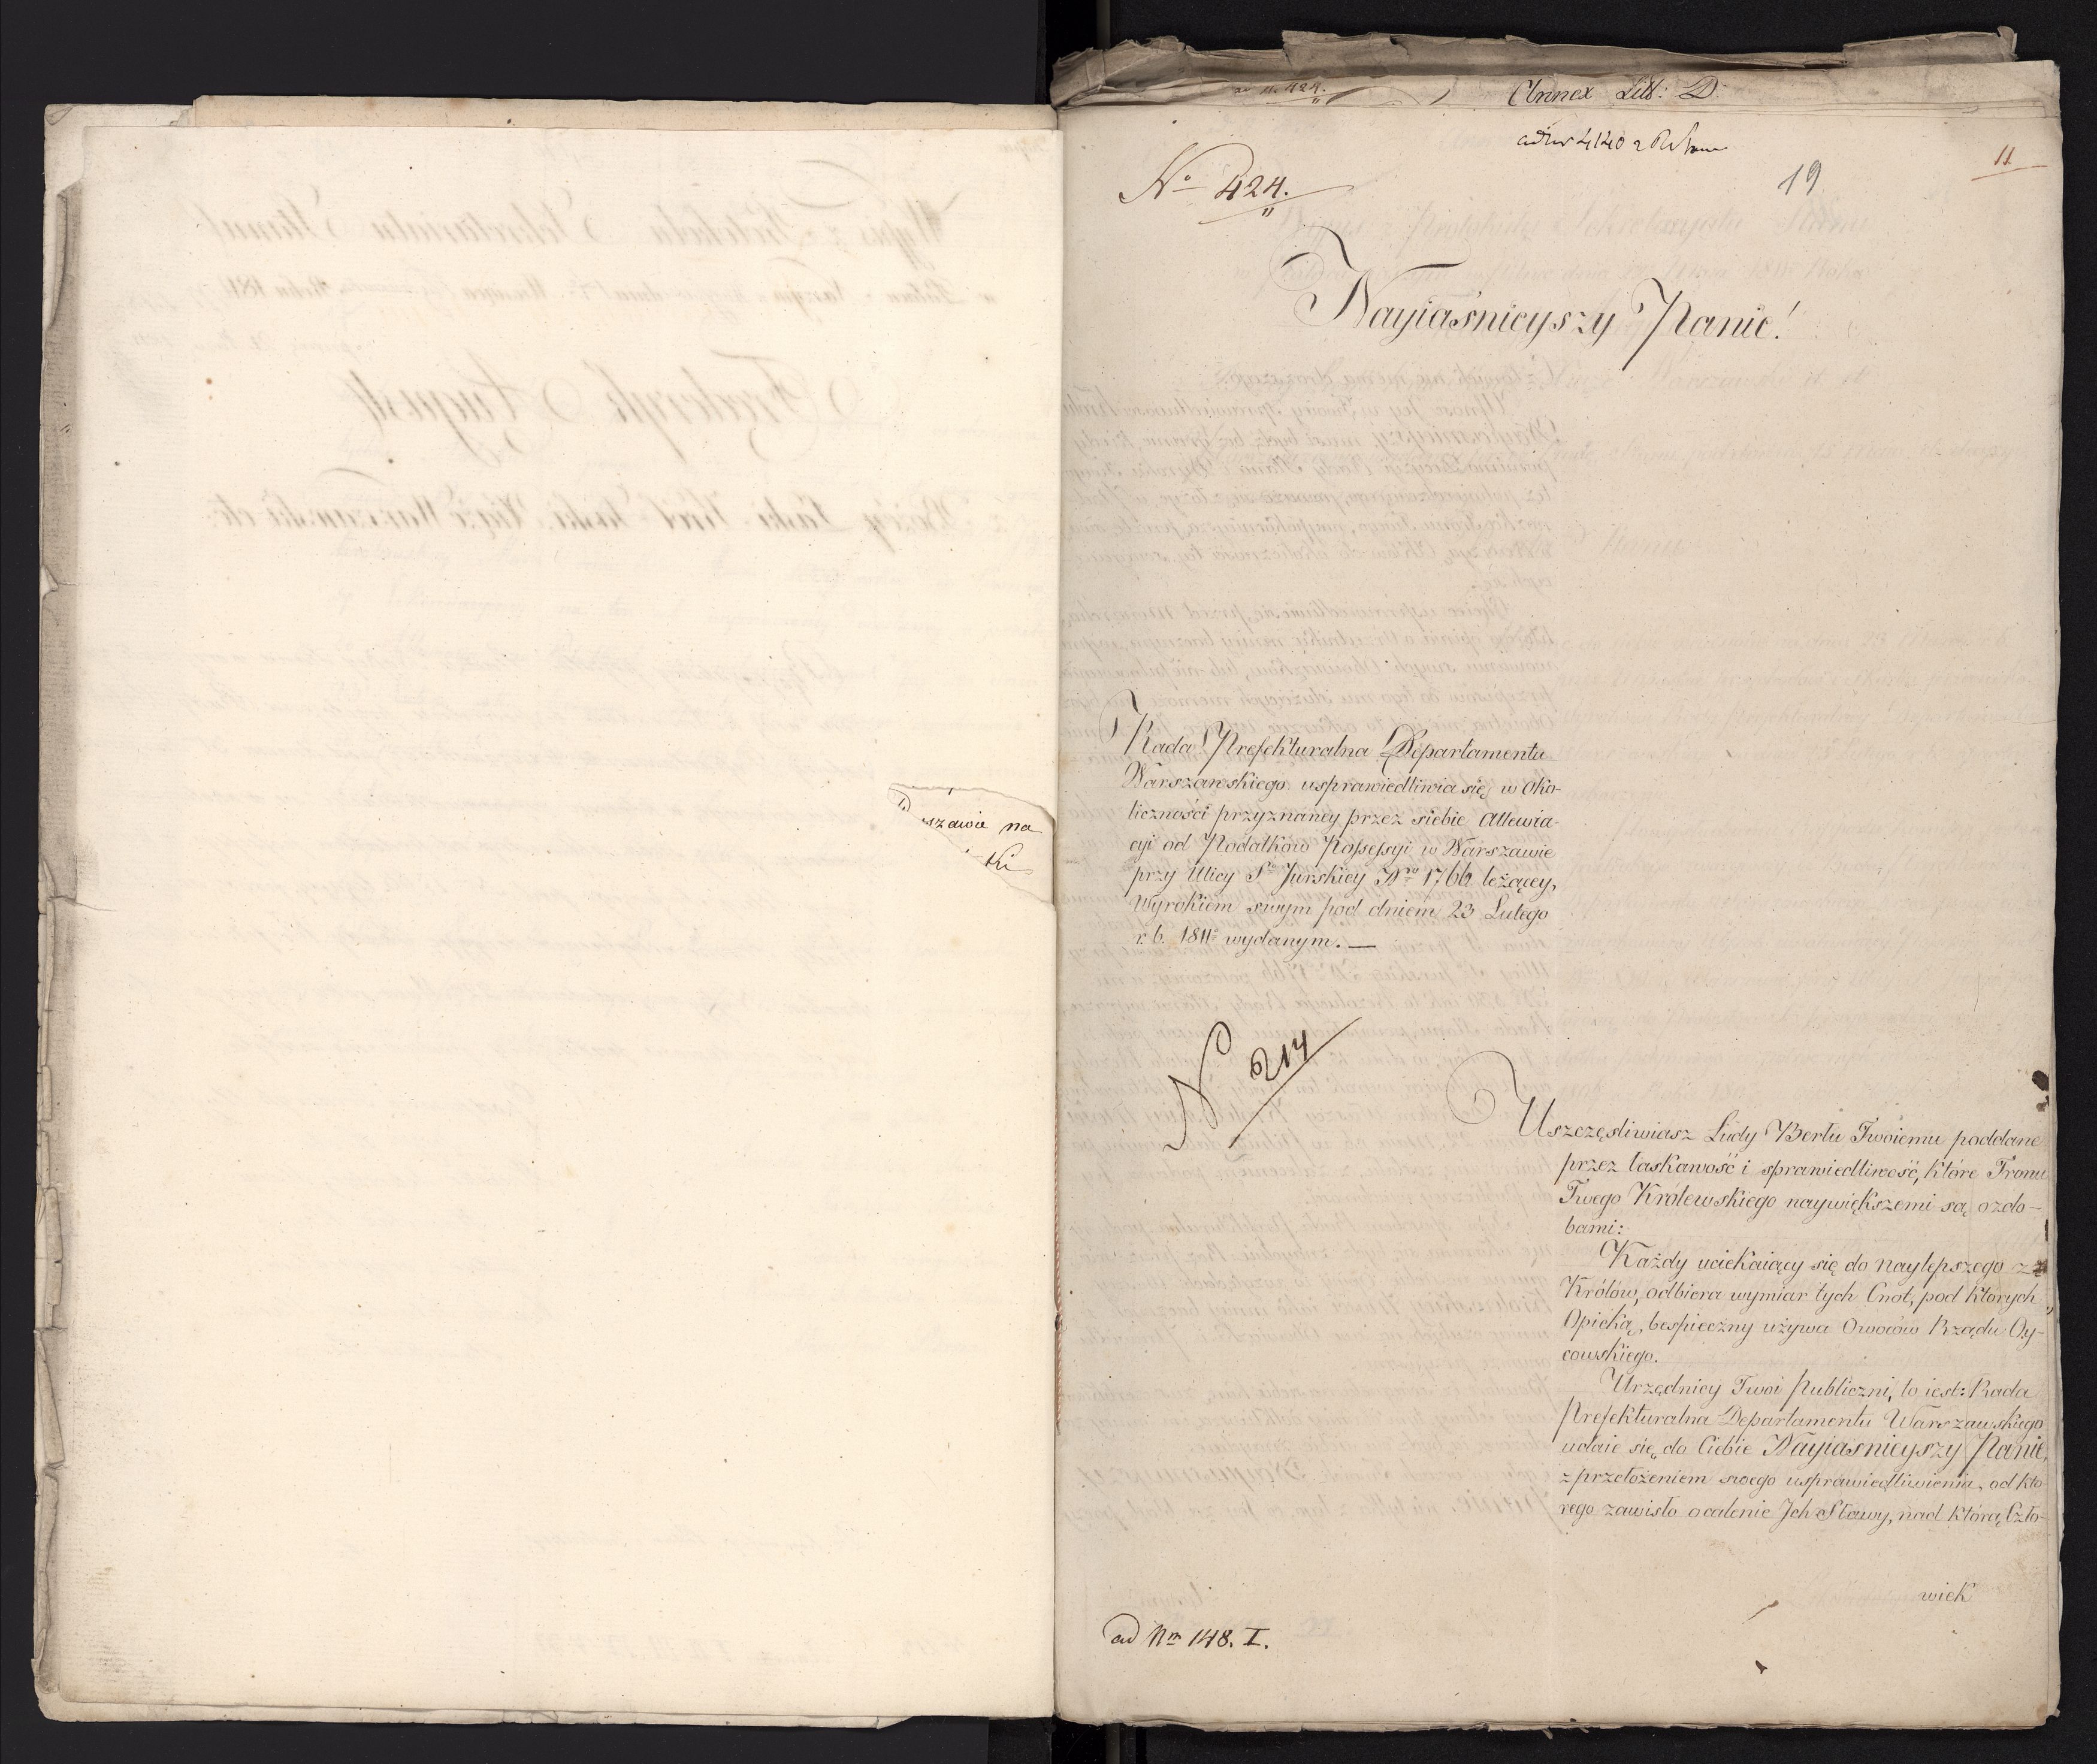 szawie na
ki
Annex Litt: D:
No 424.
19
11
Nayiaśnieyszy Panie!
Rada Prefekturalna Departamentu
Warszawskiego usprawiedliwia się w oko-
liczności przyznaney przez siebie Allewia-
cyi od Podatków Possessyi w Warszawie
przy Ulicy Sto Jurskiey Nro 1766 leżącey,
Wyrokiem swym pod dniem 23 Lutego
r. b. 1811o wydanym. —
N 214
Uszczęśliwiasz Ludy Berłu Twoiemu poddane
przez łaskawość i sprawiedliwość, które Tronu
Twego Królewskiego naywiększemi są ozdo-
bami:
Każdy uciekaiący się do naylepszego z
Królów, odbiera wymiar tych Cnot, pod których
Opieką, bespieczny używa Owoców Rządu Oy-
cowskiego.
Urzędnicy Twoi Publiczni, to iest: Rada
Prefekturalna Departamentu Warszawskiego
udaie się do Ciebie Nayiaśnieyszy Panie,
z przełożeniem swego usprawiedliwienia, od któ-
rego zawisło ocalenie Jch Sławy, nad którą Czło-
wiek
ad Nrm 148. I.